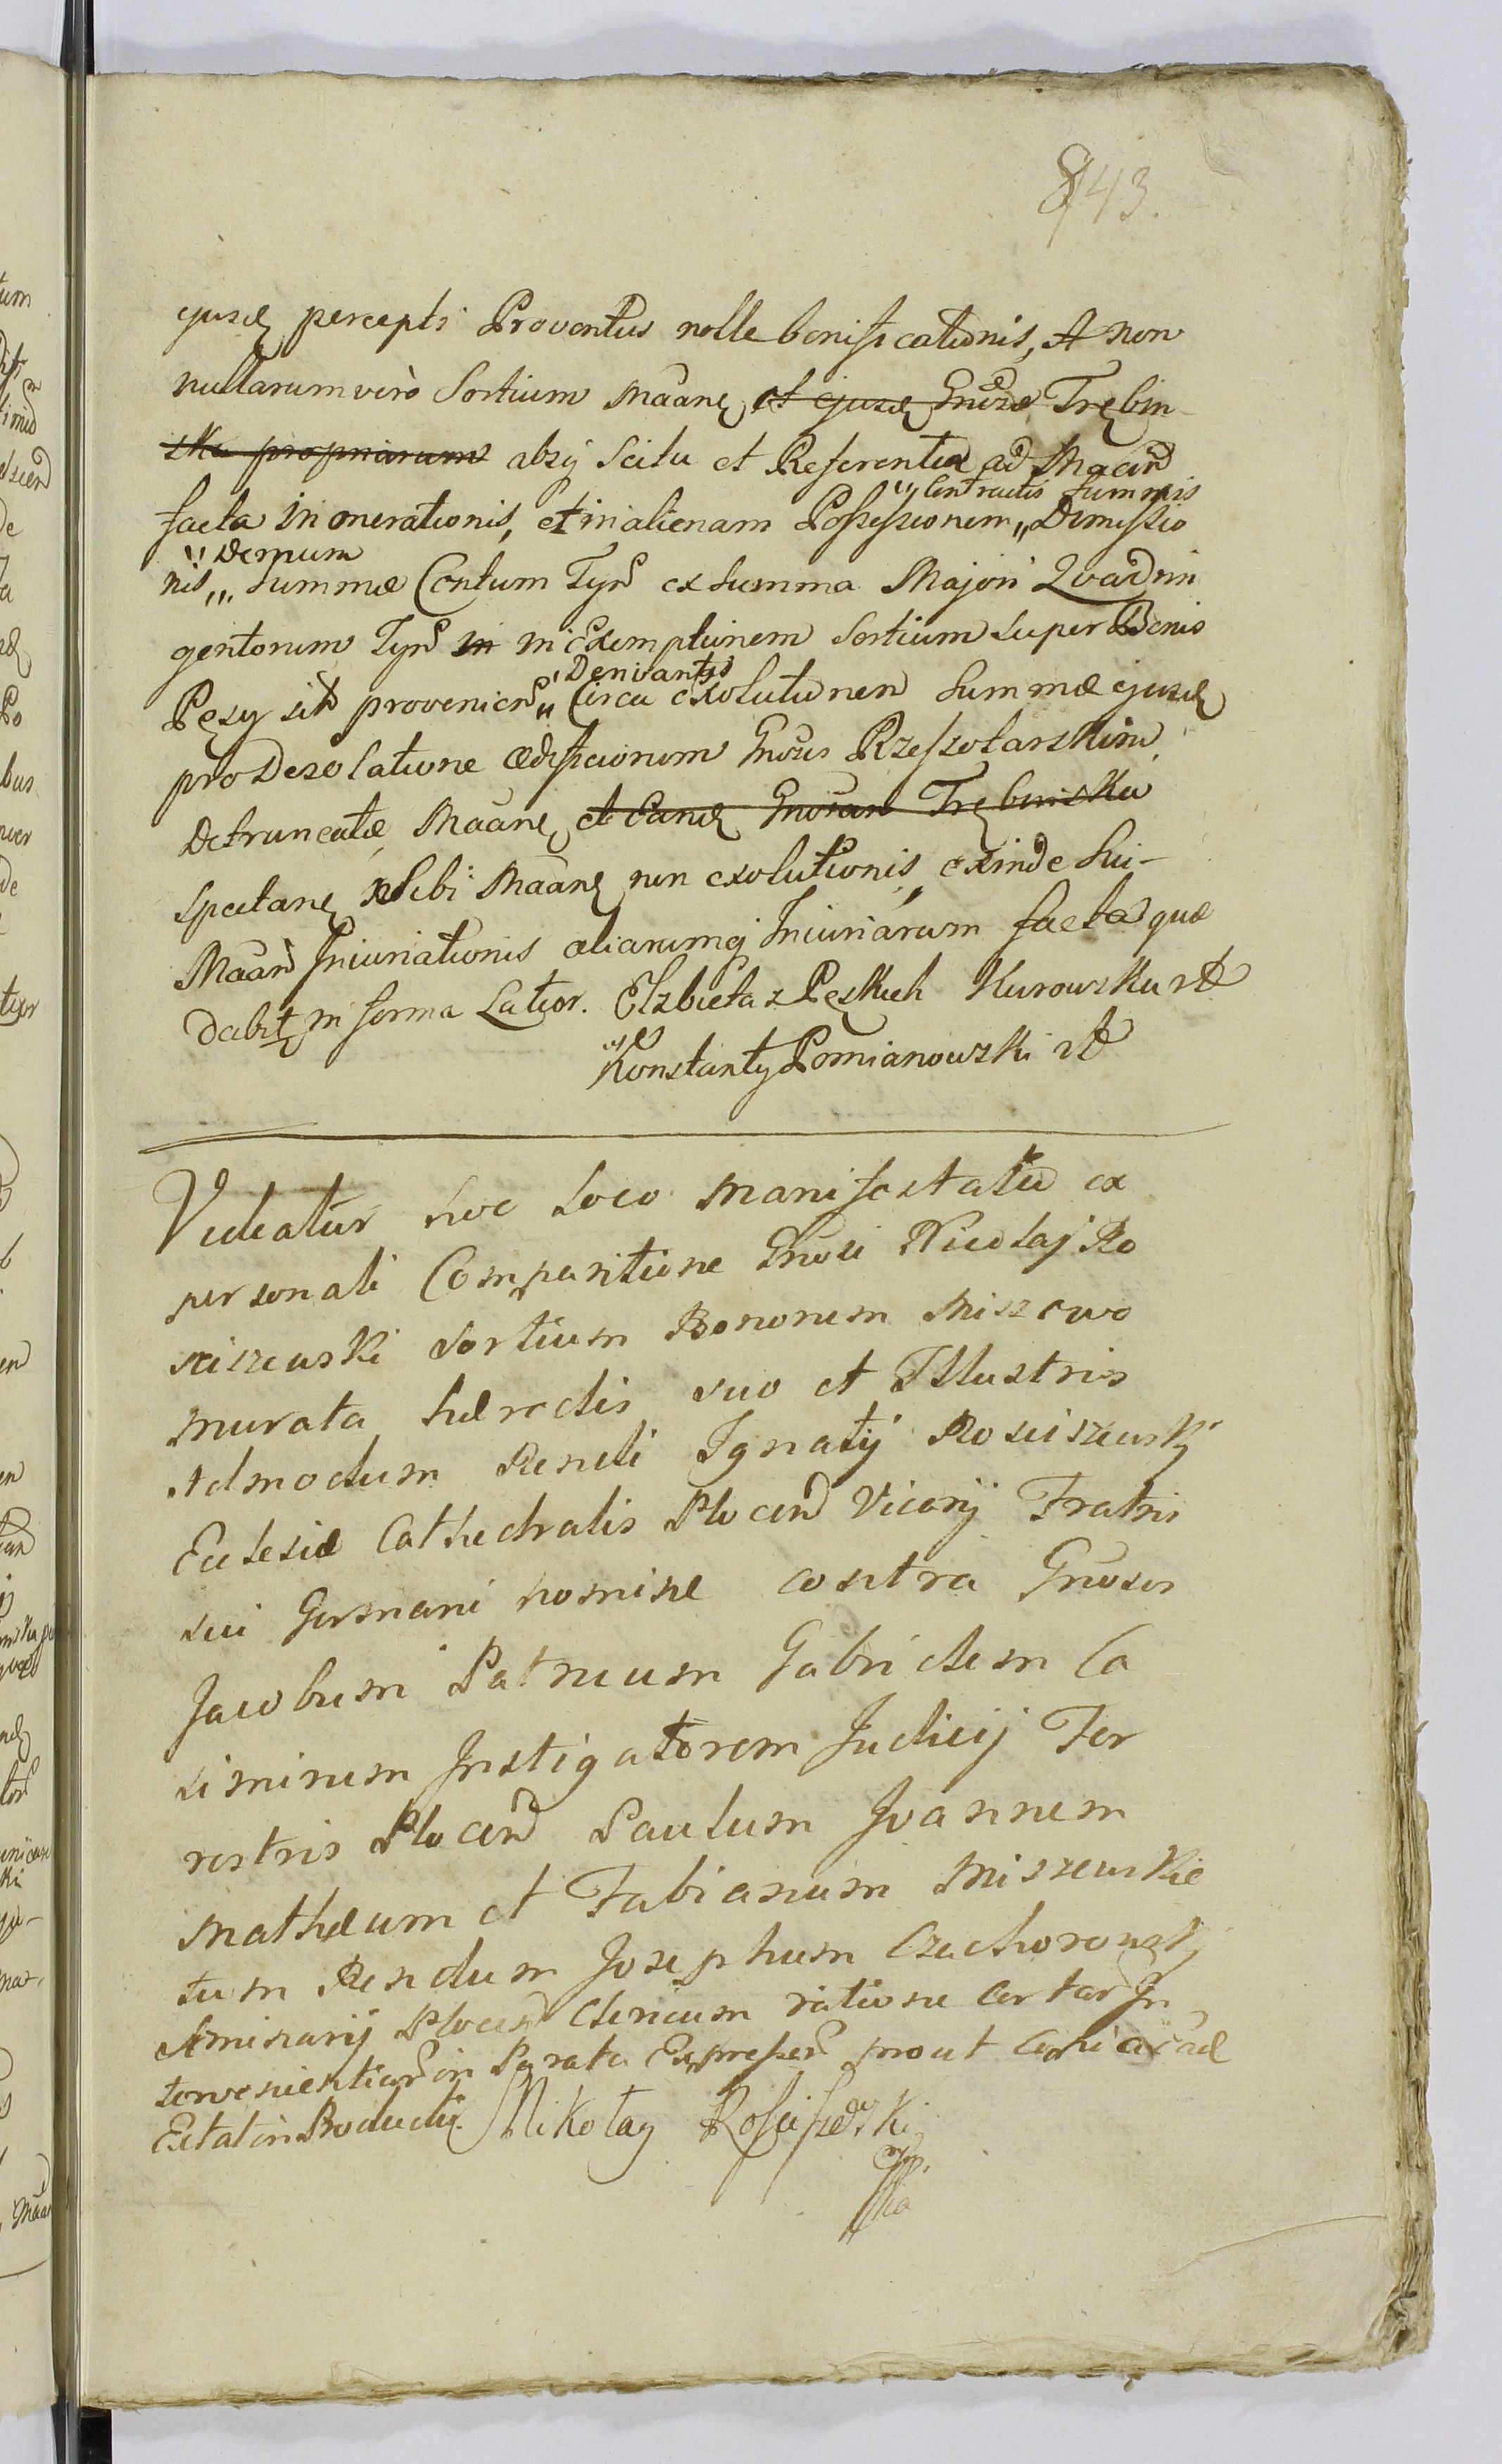 843.
ejusdę percepti Proventus nolle bonificationis, A non
nullarum verò Sortium Maanę et ejusdę Gnosæ Trębin-
ska propriarum absq Scitu et Referentia ad Maan
facta in onerationis, et in alienam Possessionem „ Dimissio
„ Contractis Summis
nis „ Summæ Centum Tyn ex summa Majori Quadrin
„ Demum
gentorum Tyn in in Exemptionem Sortium super Bonis
Pęsy sit provenien „ Circa exolutionem Summæ ejusdę
„ Derivantis
pro Desolatione ædificiorum Gnosis Rzeszotarskim
Detruncatæ, Maanę et Eandę Gnosan Trębinska
spectanę sibi Maanę non exolutionis, exinde Sui-
Maan Iniuriationis aliarumq Iniuriarum facta quæ
dabit in forma Latior. Elzbieta z Pęskich Kurowska
Konstanty Pomianowski
Videatur hoc loco Manifestatio ex
personali Comparitione Gnosi Nicolaj Ro
sciszewski Sortium Bonorum Miszewo
murata hæredis suo et Illustris
Admodum Rendi Ignatij Rosciszewskj
Eclesiæ Cathedralis Plocen Vicarij Fratris
sui Germani nomine contra Gnosos
Jacobum Patruum Gabrielem Ca
simirum Instigatorem Judicij Ter
restris Plocen Paulum Joannem
Mathæum et Fabianum Miszewskie
tum Rendum Josephum Czachorowskj
Seminarij Plocen Clericum ratione Certar In
tervenientiar in Parata Expressar prout
Extat in Producti. Mikołay Rosciszewski